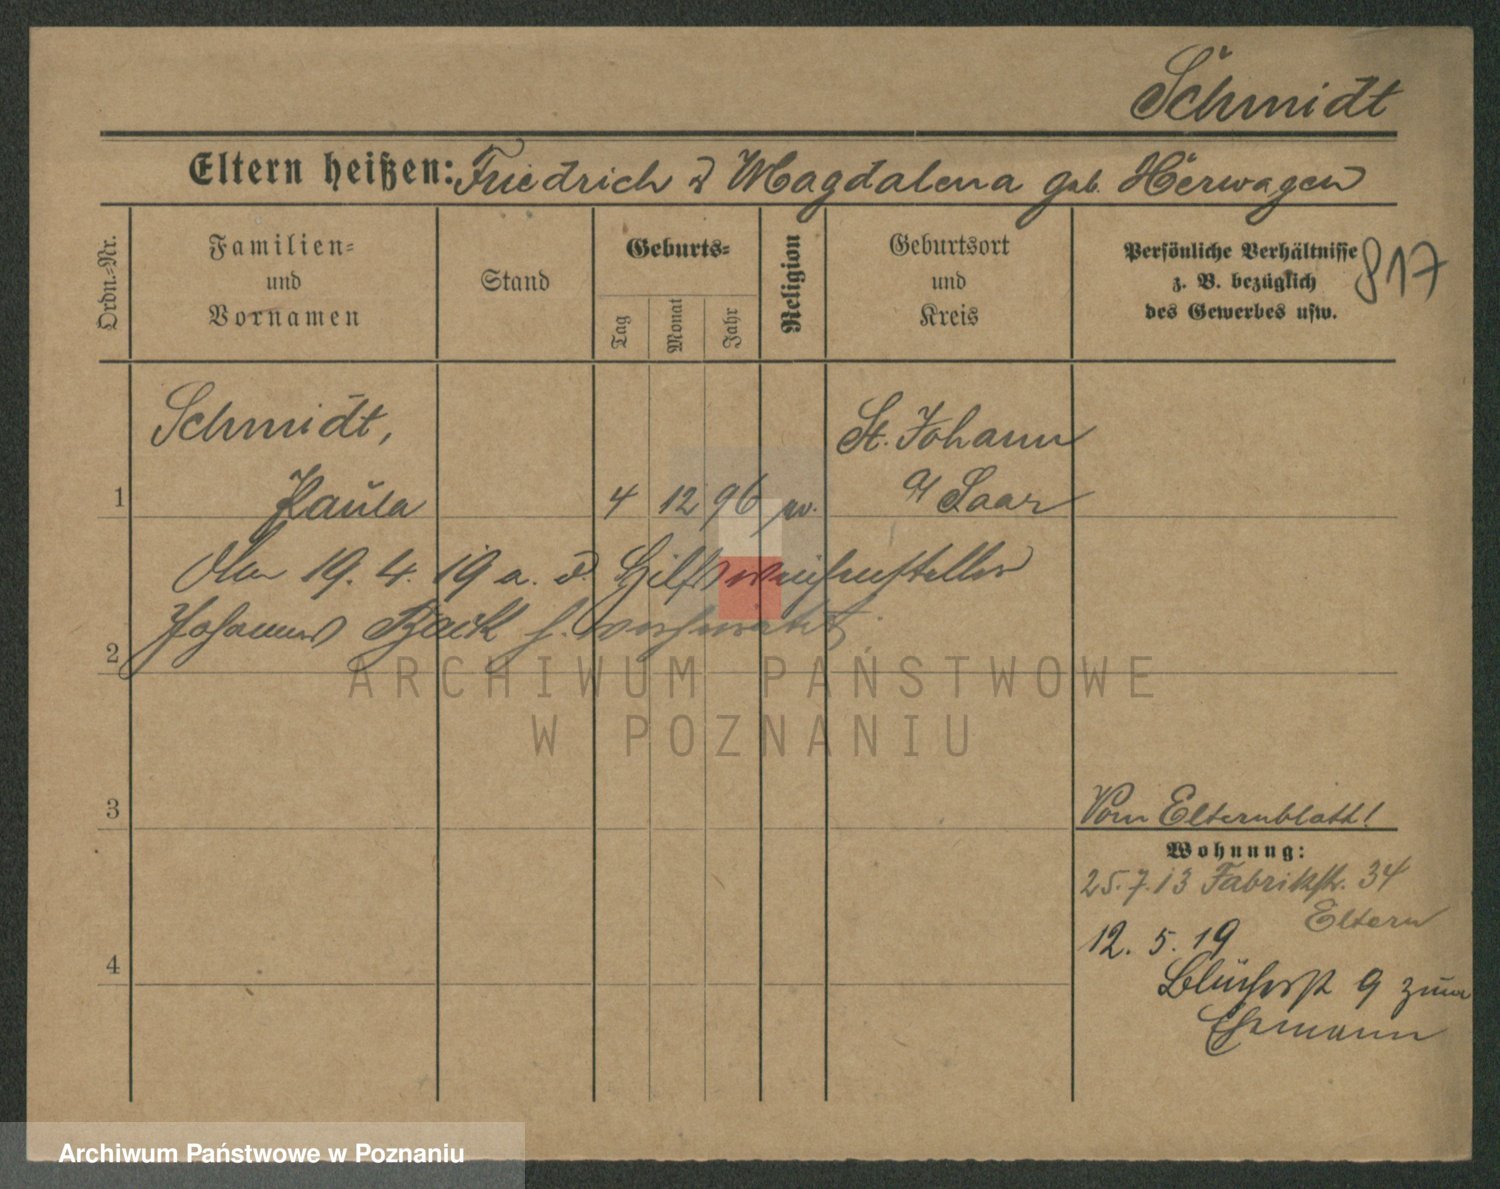 Schmidt
Eltern heißen: Friedrich u Magdalena geb. Herwagen
Ordn.-Nr.
Familien-
und
Vornamen
Stand
Geburts-
Tag
Monat
Jahr
Religion
Geburtsort
und
Kreis
Persönliche Verhältnisse
z. B. bezüglich
des Gewerbes usw.
817
Schmidt,
St. Johann
1 Paula 4 12 96 a/ Saar
19. 4. 19 a. d. Hilfsweichensteller
Johannes h. verheiratet
2
3
Vom Elternblatt!
Wohnung:
25.7.13 Fabrikstr. 34
Eltern
12. 5. 19
4
Blücherst 9 zum
Ehemann
ARCHIWUM PAŃSTWOWE
W POZNANIU
Archiwum Państwowe w Poznaniu